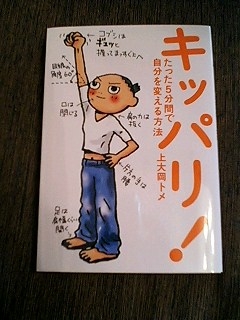 キッパリ!
たった5分間で
自分を変える方法
上大岡トメ
コブシは
ギュッと
握ってまっすぐ上へ
目線の
角度60°
口は
閉じる
肩の力は
抜く
片方の手は
腰
足は
肩幅くらいに
開く